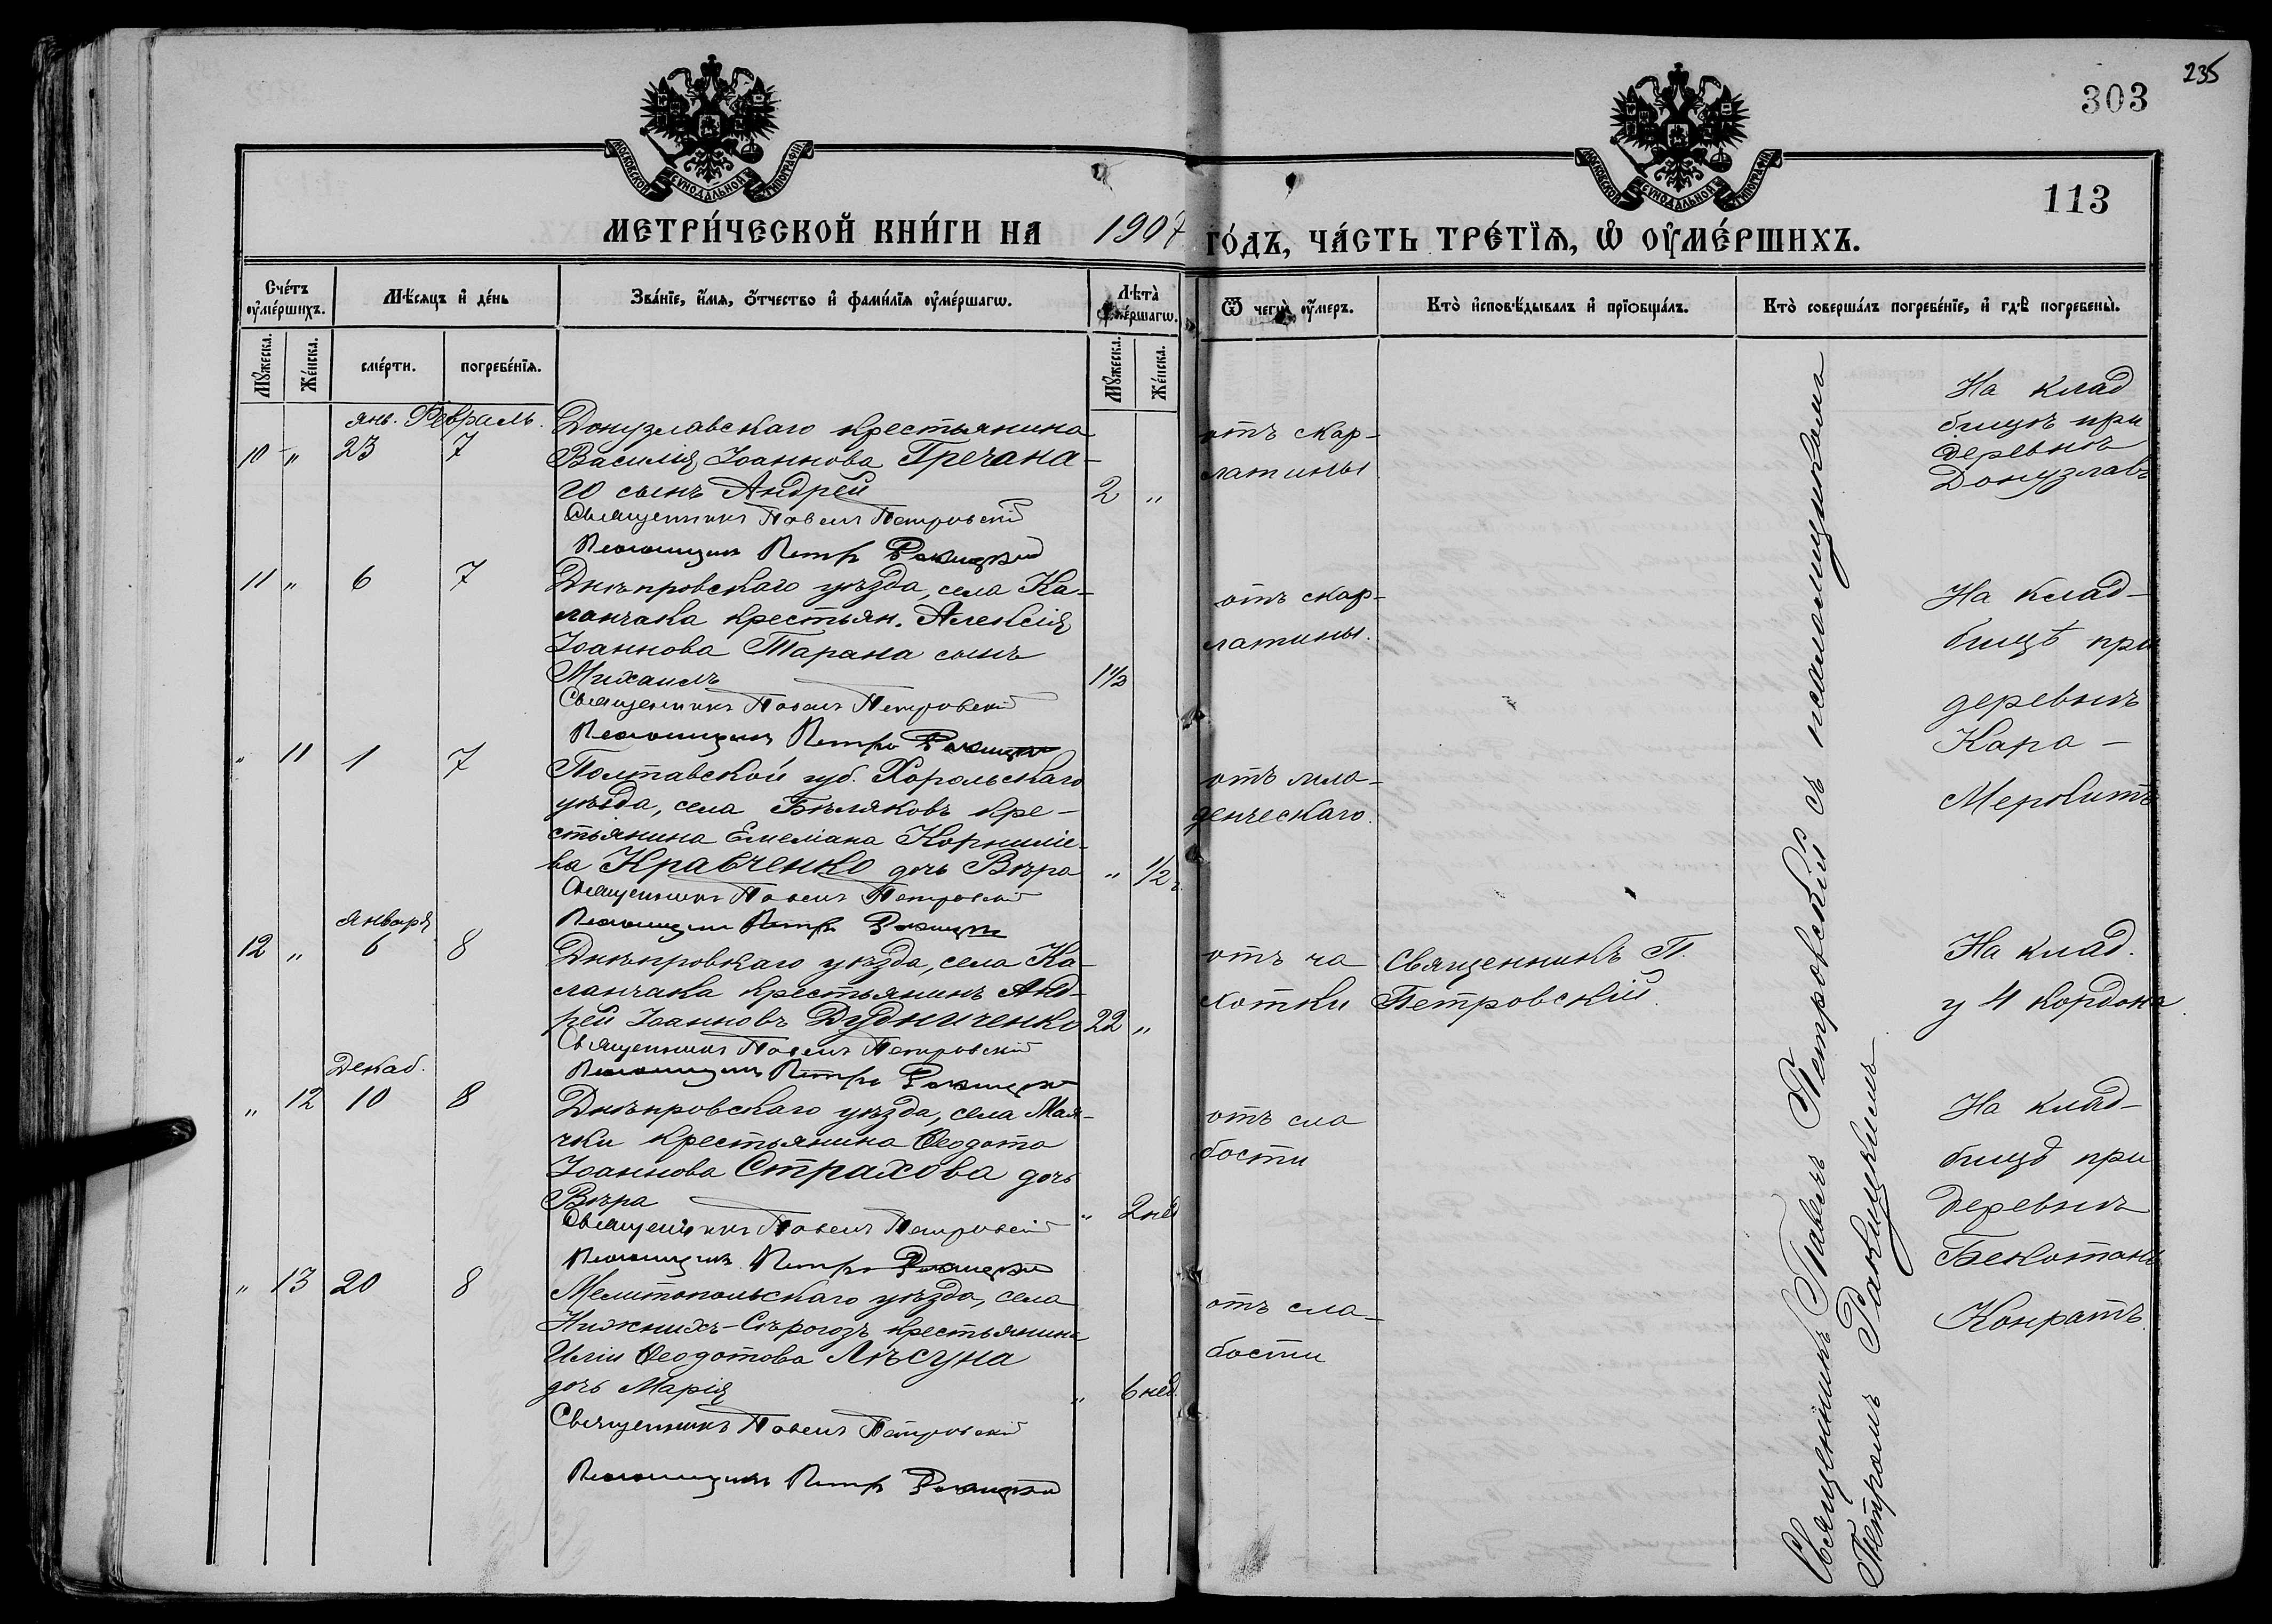 235
303
113
МОСКОВСКОЙ СѴНОДАЛЬНОЙ ТИПОГРАФІИ
МОСКОВСКОЙ СѴНОДАЛЬНОЙ ТИПОГРАФІИ
МЕТРИ́ЧЕСКОЙ КНИ́ГИ НА 1907 ГО́ДЪ, ЧА́СТЬ ТРЕ́ТЇѦ, Ѽ ОУ҆МЕ́РШИХЪ.
Сче́тъ оу҆ме́ршихъ.
Мѣ́сяцъ и҆ де́нь
Зва́нїе, и҆́мѧ, ѻ҆́тчество и҆ фами́лїѧ оу҆ме́ршагѡ.
Лѣ́та оу҆ме́ршагѡ.
Ѿ чегѡ̀ оу҆́меръ.
Кто̀ и҆сповѣ́дывалъ и҆ прїѻбща́лъ.
Кто̀ соверша́лъ погребе́нїе, и҆ гдѣ̀ погребены̀.
Мꙋ́жеска.
Же́нска.
сме́рти.
погребе́нїѧ.
Мꙋ́жеска.
Же́нска.
янв. Февраль.
10 " 23 7
Донузлавскаго крестьянина
Василія Іоаннова Гречана-
го сынъ Андрей 2 "
Священникъ Павелъ Петровскій
Псаломщикъ Петръ Ракицкій
отъ скар-
латины
На клад
бищѣ при
деревнѣ
Донузлавъ
11 " 6 7
Днѣпровскаго уѣзда, села Ка-
ланчака крестьян. Алексія
Іоаннова Тарана сынъ
Михаилъ 1 1/2
Священникъ Павелъ Петровскій
Псаломщикъ Петръ Ракицкій
отъ скар-
латины.
На клад-
бищѣ при
деревнѣ
Кара-
Меркитъ
" 11 1 7
Полтавской губ. Хорольскаго
уѣзда, села Бѣляковъ кре-
стьянина Емеліана Корниліе-
ва Кравченко дочь Вѣра " 1/2
Священникъ Павелъ Петровскій
Псаломщикъ Петръ Ракицкій
отъ мла-
денческаго.
Января
12 " 6 8
Днѣпровскаго уѣзда, села Ка-
ланчака крестьянинъ Анд-
рей Іоанновъ Дудниченко 22 "
Священникъ Павелъ Петровскій
Псаломщикъ Петръ Ракицкій
отъ ча
хотки
Священникъ П.
Петровскій.
На клад.
у 4 кордона.
Декаб.
" 12 10 8
Днѣпровскаго уѣзда, села Мая-
чки крестьянина Ѳеодота
Іоаннова Страхова дочь
Вѣра " 2 нед
Священникъ Павелъ Петровскій
Псаломщикъ Петръ Ракицкій
отъ сла
бости
На клад-
бищѣ при
деревнѣ
Бекотанъ
Конратъ.
" 13 20 8
Мелитопольскаго уѣзда, села
Нижнихъ-Сѣрогозъ крестьянина
Иліи Ѳеодотова Лѣсуна
дочь Марія " 6 нед.
Священникъ Павелъ Петровскій
Псаломщикъ Петръ Ракицкій
отъ сла-
бости
Священникъ Павелъ Петровскій съ псаломщикомъ
Петромъ Ракицкимъ